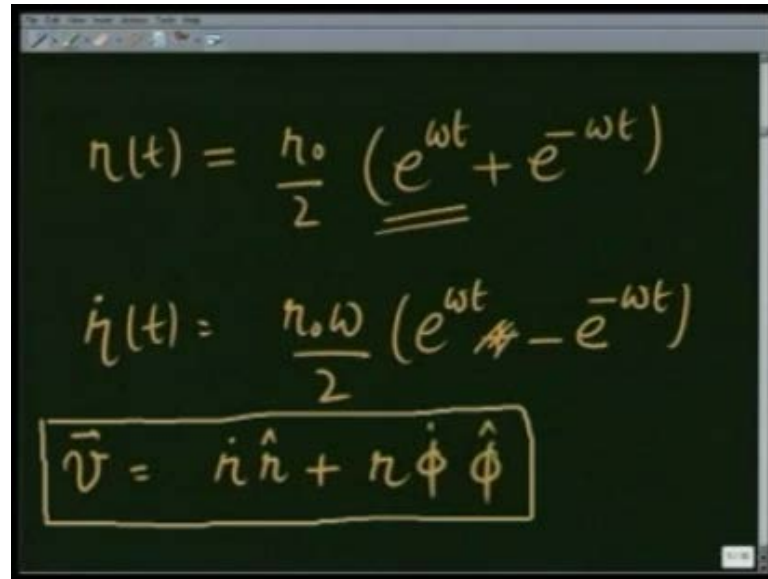 r(t) = r₀/2 (e^ωt + e^-ωt)
ṙ(t) = r₀ω/2 (e^ωt - e^-ωt)
v⃗ = ṙ r̂ + r φ̇ φ̂